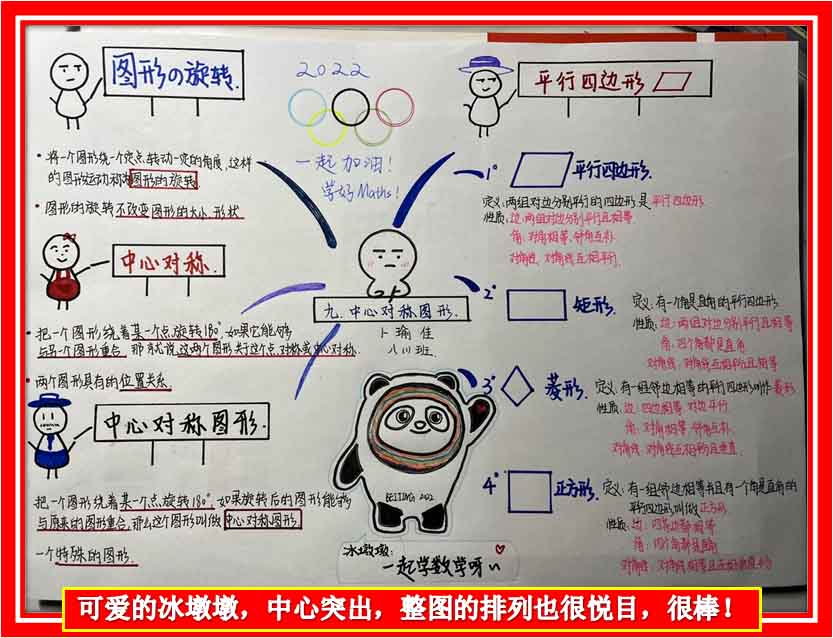 图形の旋转.
将一个图形绕一个定点转动一定的角度,这样
的图形运动称为图形的旋转
图形的旋转不改变图形的大小.形状
中心对称.
把一个图形绕着某一个点旋转180°,如果它能够
与另一个图形重合,那就说这两个图形关于这个点对称或中心对称.
两个图形具有的位置关系.
中心对称图形.
把一个图形绕着某一个点旋转180°,如果旋转后的图形能够
与原来的图形重合,那么这个图形叫做中心对称图形.
一个特殊的图形.
2022
一起加油!
学好Maths!
九.中心对称图形.
卜瑜佳
八(1)班.
BEIJING 2022
冰墩墩:
一起学数学呀
平行四边形
1° 平行四边形.
定义:两组对边分别平行的四边形是平行四边形
性质:边:两组对边分别平行且相等.
角:对角相等,邻角互补.
对角线:对角线互相平分.
2° 矩形.
定义:有一个角是直角的平行四边形
性质:边:两组对边分别平行且相等
角:四个角都是直角
对角线:对角线互相平分且相等
3° 菱形.
定义:有一组邻边相等的平行四边形叫作菱形
性质:边:四边相等.对边平行.
角:对角相等.邻角互补.
对角线:对角线互相平分且垂直.
4° 正方形.
定义:有一组邻边相等并且有一个角是直角的
平行四边形叫做正方形.
性质:边:四条边都相等
角:四个角都是直角
对角线:对角线相等且互相垂直平分
可爱的冰墩墩，中心突出，整图的排列也很悦目，很棒！